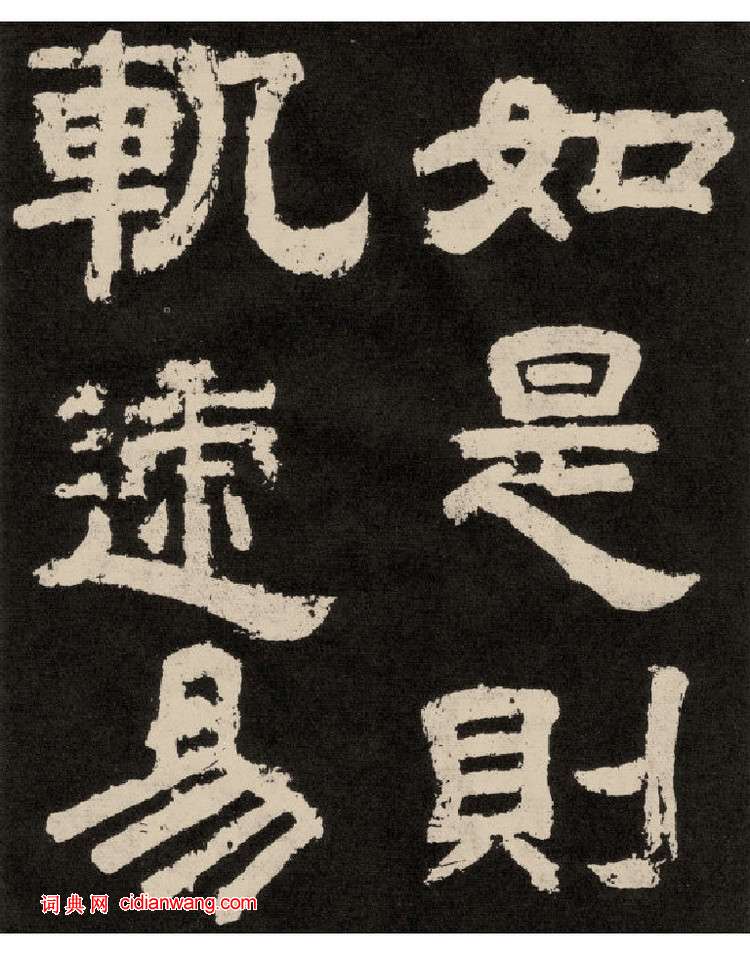 如是則
軌逮易
词典网 cidianwang.com